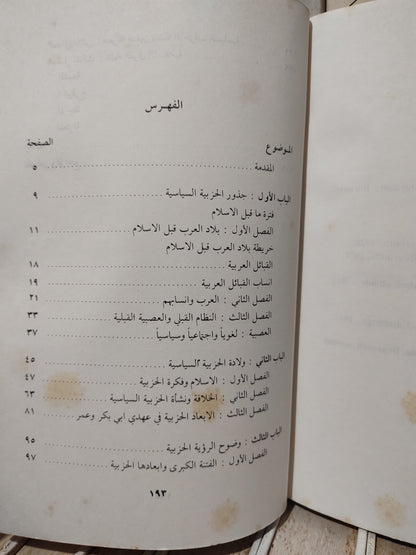 الفهرس
الموضوع الصفحة
المقدمة ........ ٥
الباب الأول : جذور الحزبية السياسية ........ ٩
فترة ما قبل الاسلام
الفصل الأول : بلاد العرب قبل الاسلام ........ ١١
خريطة بلاد العرب قبل الاسلام
القبائل العربية ........ ١٨
انساب القبائل العربية ........ ١٩
الفصل الثاني : العرب وانسابهم ........ ٢١
الفصل الثالث : النظام القبلي والعصبية القبلية ........ ٣٣
العصبية : لغوياً واجتماعياً وسياسياً ........ ٣٧
الباب الثاني : ولادة الحزبية السياسية ........ ٤٥
الفصل الأول : الاسلام وفكرة الحزبية ........ ٤٧
الفصل الثاني : الخلافة ونشأة الحزبية السياسية ........ ٦٣
الفصل الثالث : الابعاد الحزبية في عهدي ابي بكر وعمر ........ ٨١
الباب الثالث : وضوح الرؤية الحزبية ........ ٩٥
الفصل الأول : الفتنة الكبرى وابعادها الحزبية ........ ٩٧
١٩٣